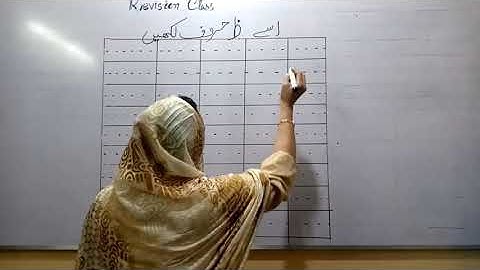 Revision Class
ا سے ظ حروف لکھیں